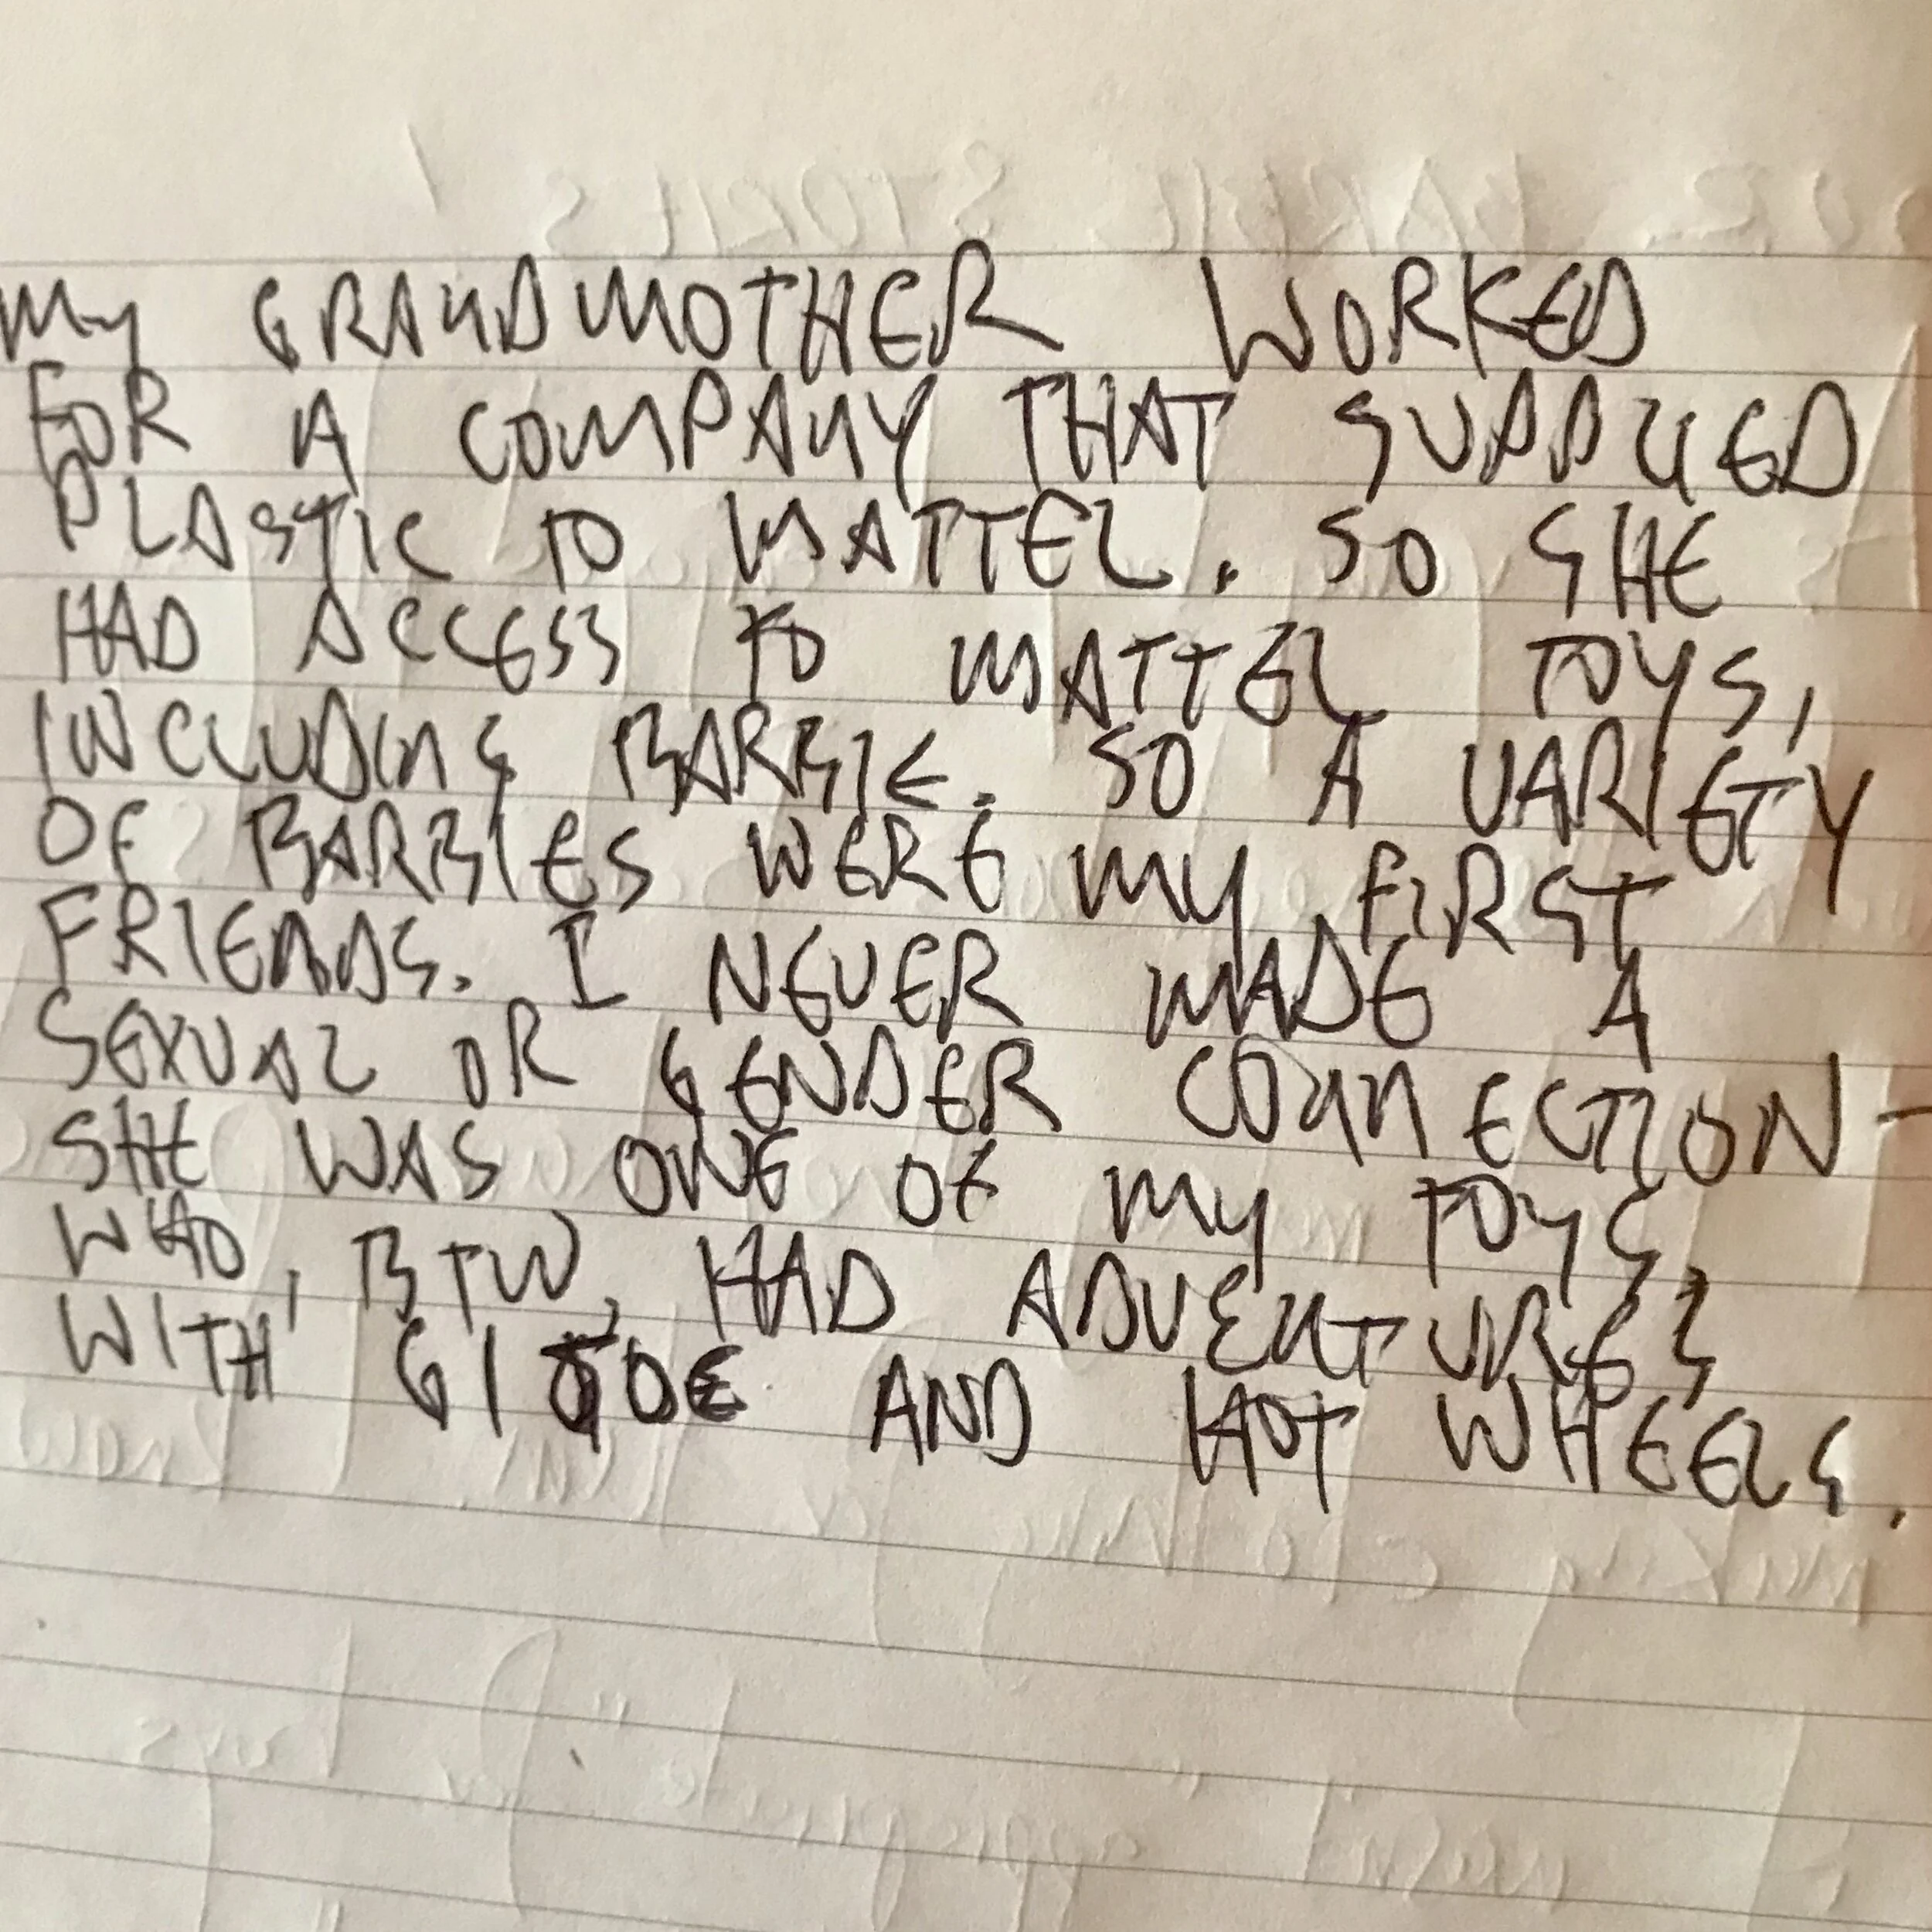 My GRANDMOTHER WORKED
FOR A COMPANY THAT SUPPLIED
PLASTIC TO MATTEL. SO SHE
HAD ACCESS TO MATTEL TOYS,
INCLUDING BARBIE. SO A VARIETY
OF BARBIES WERE MY FIRST
FRIENDS. I NEVER MADE A
SEXUAL OR GENDER CONNECTION -
SHE WAS ONE OF MY TOYS,
WHO, BTW, HAD ADVENTURES
WITH GI JOE AND HOT WHEELS.